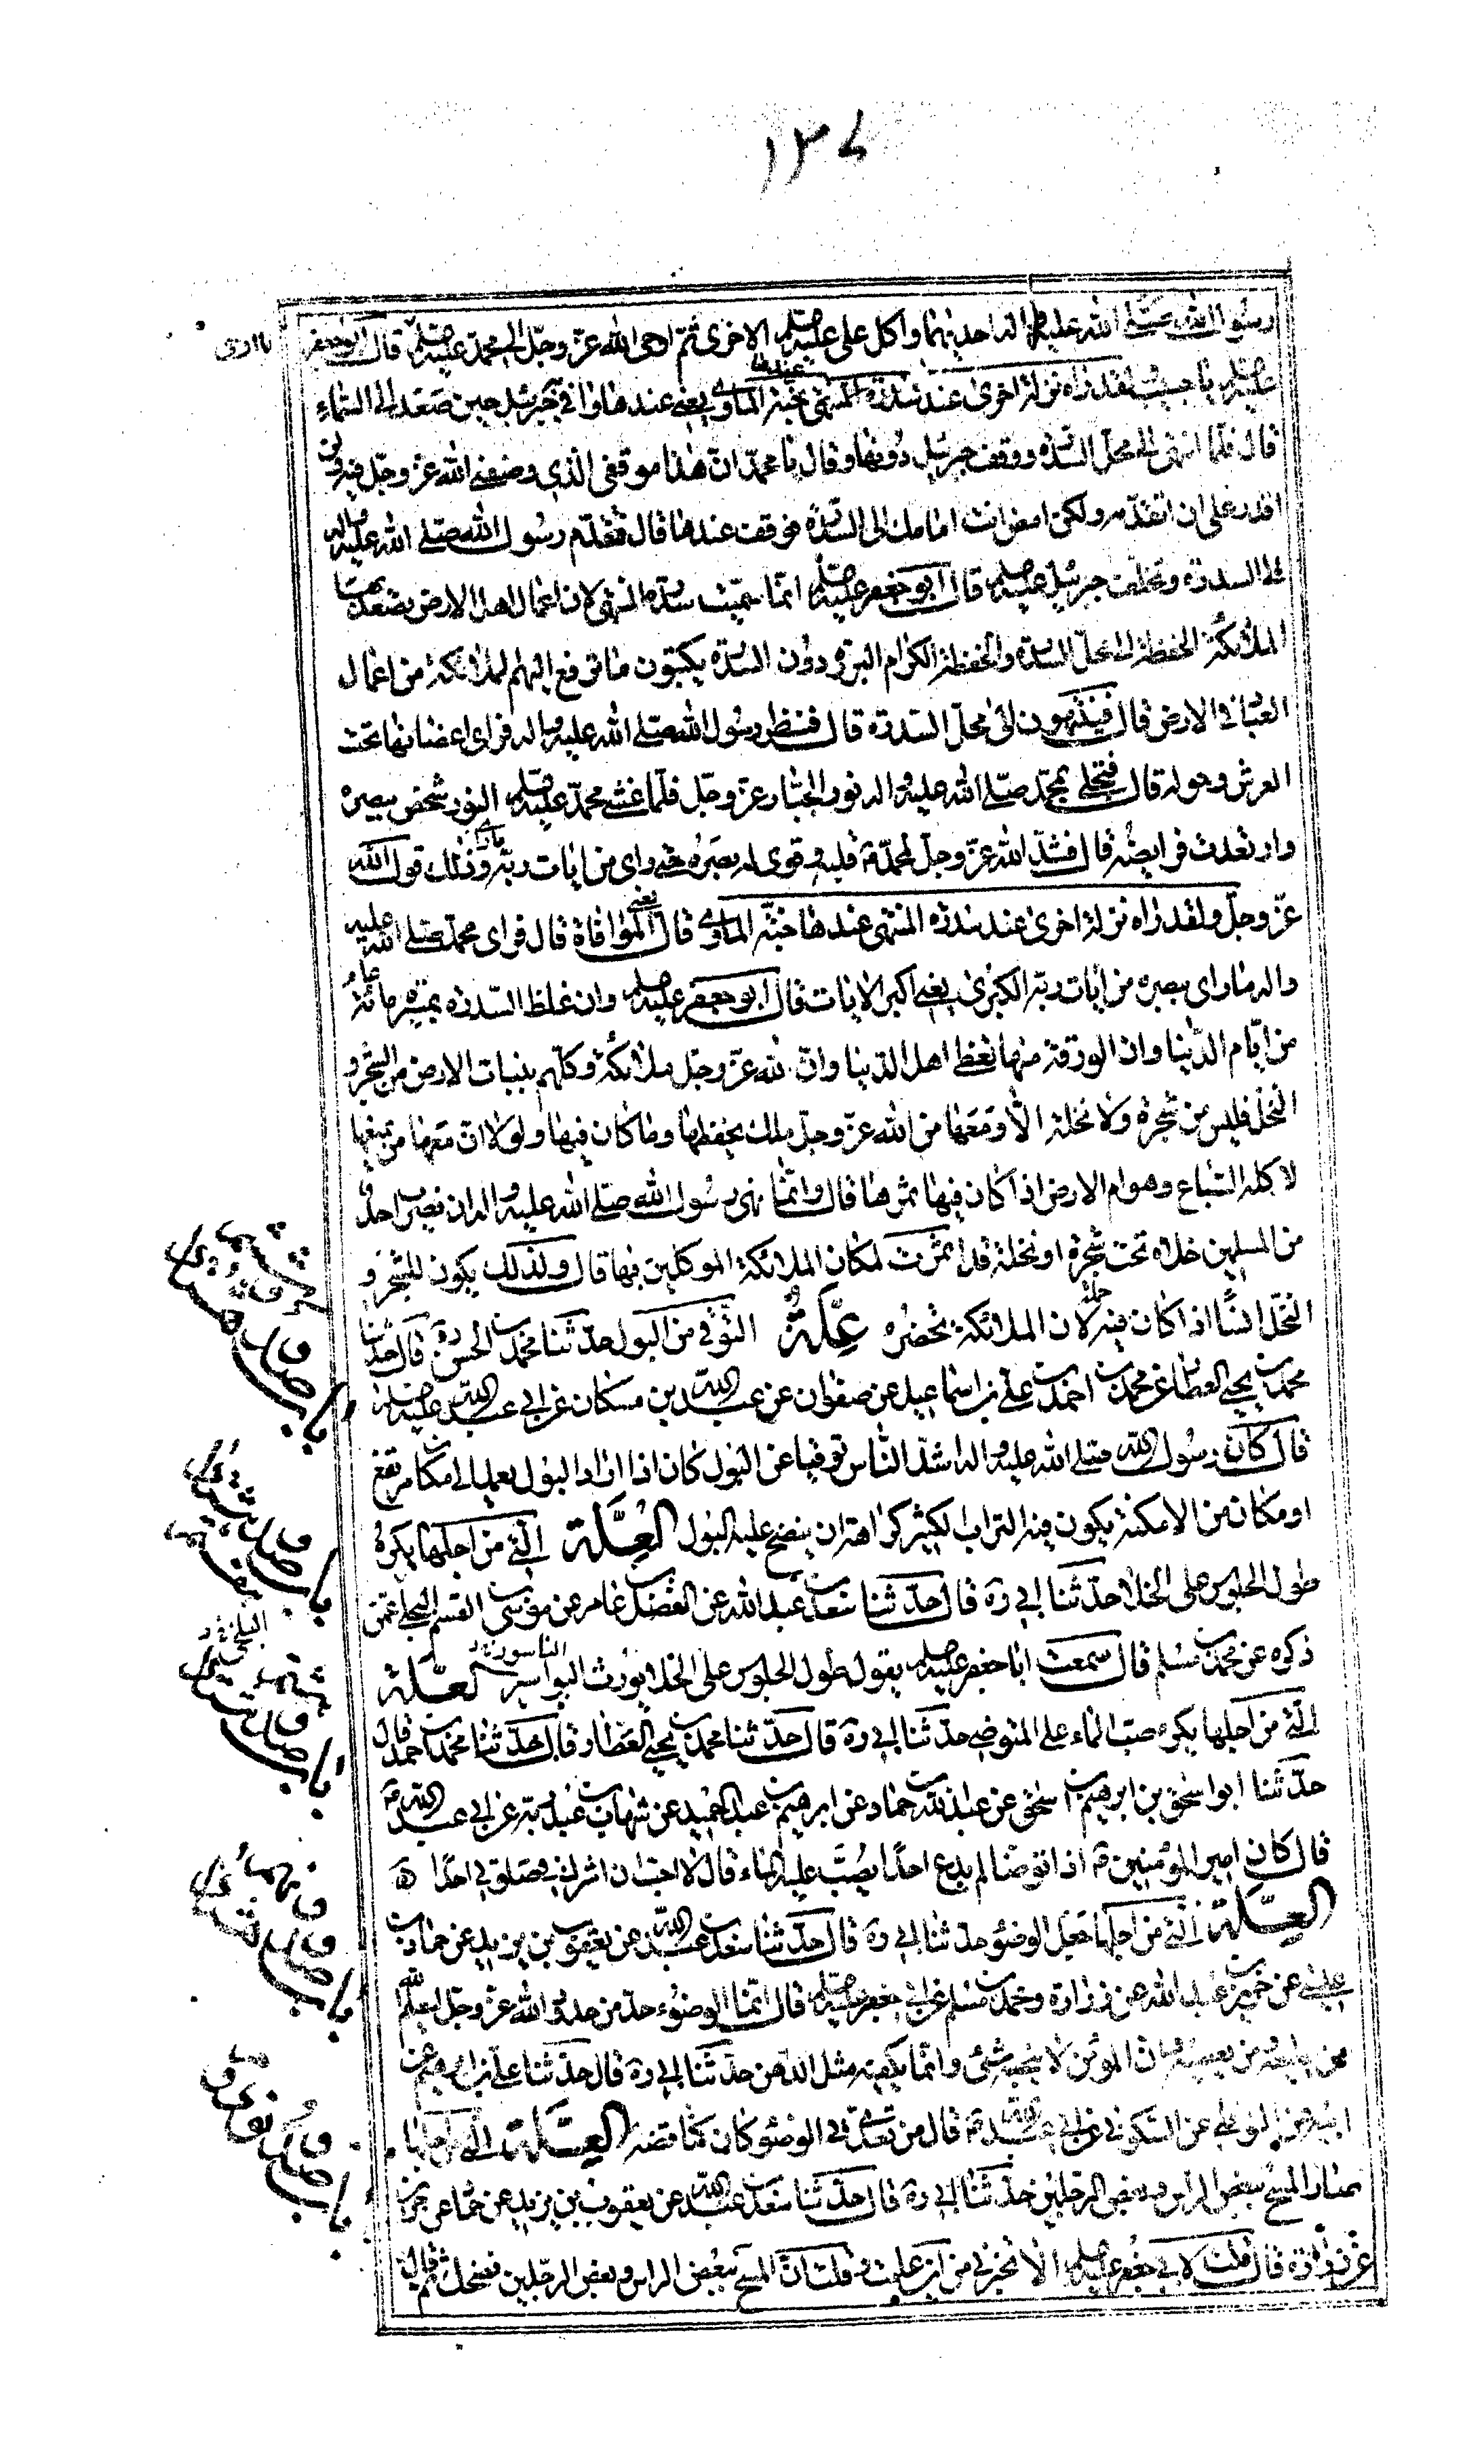 ١٣٧
رسول الله صلى الله عليه واله احديهما واكل على عليه السلم الاخرى ثم اوحى الله عز وجل الى محمد عليه السلم قال ابو جعفر
عليه السلم يا حبيب ولقد راه نزلة اخرى عند سدرة المنتهى عندها جنة الماوى يعنى عندها وافى جبرئيل حين صعد الى السماء
قال فلما انتهى الى محل السدرة ووقف جبرئيل دونها وقال يا محمد ان هذا موقفى الذى وضعنى الله عز وجل فيه ولن
اقدر على ان اتقدمه ولكن امض انت امامك الى السدرة فوقف عندها قال فتقدم رسول الله صلى الله عليه واله
الى السدرة وتخلف جبرئيل عليه السلم قال ابو جعفر عليه السلم انما سميت سدرة المنتهى لان اعمال اهل الارض يصعد بها
الملائكة الحفظة الى محل السدرة والحفظة الكرام البررة دون السدرة يكتبون ما ترفع اليهم الملائكة من اعمال
العباد فى الارض قال فينتهون الى محل السدرة قال فنظر رسول الله صلى الله عليه واله فراى اغصانها تحت
العرش وحوله قال فتجلى لمحمد صلى الله عليه واله نور الجبار عز وجل فلما غشى محمد عليه السلم النور شخص ببصره
وارتعدت فرايصه قال فشد الله عز وجل لمحمد قلبه وقوى له بصره حتى راى من ايات ربه ما راى وذلك قول الله
عز وجل ولقد راه نزلة اخرى عند سدرة المنتهى عندها جنة الماوى قال يعنى الموافاة قال فراى محمد صلى الله عليه
واله ما راى ببصره من ايات ربه الكبرى يعنى اكبر الايات قال ابو جعفر عليه السلم وان غلظ السدرة بمسيرة مائة عام
من ايام الدنيا وان الورقة منها تغطى اهل الدنيا وان لله عز وجل ملائكة وكلهم بنبات الارض من الشجر و
النخل فليس من شجرة ولا نخلة الا ومعها من الله عز وجل ملك يحفظها وما كان فيها ولولا ان معها من يمنعها
لاكله السباع وهوام الارض اذا كان فيها ثمرها قال وانما نهى رسول الله صلى الله عليه واله ان يضرب احد
من المسلمين خلاه تحت شجرة او نخلة قد اثمرت لمكان الملائكة الموكلين بها قال ولذلك يكون للشجر و
النخل انسا اذا كان فيه حمله لان الملائكة تحضره علة التوقى من البول حدثنا محمد بن الحسن ره قال حدثنا
محمد بن يحيى العطار عن محمد بن احمد بن على بن اسماعيل عن صفوان عن عبد الله بن مسكان عن ابى عبد الله عليه السلم
قال كان رسول الله صلى الله عليه واله اشد الناس توقيا عن البول كان اذا اراد البول يعمد الى مكان مرتفع
او مكان من الامكنة يكون فيه التراب الكثير كراهة ان ينضح عليه البول العلة التى من اجلها يكره
طول الجلوس على الخلا حدثنا ابى ره قال حدثنا سعد بن عبد الله عن الفضل بن عامر عن موسى بن القسم البجلى عمن
ذكره عن محمد بن مسلم قال سمعت ابا جعفر عليه السلم يقول طول الجلوس على الخلا يورث البواسير العلة
التى من اجلها يكره صب الماء على المتوضى حدثنا ابى ره قال حدثنا محمد بن يحيى العطار قال حدثنا محمد بن احمد قال
حدثنا ابو اسحق بن ابرهيم بن اسحق عن عبد الله بن حماد عن ابرهيم بن عبد الحميد عن شهاب بن عبد ربه عن ابى عبد الله
قال كان امير المؤمنين اذا توضا لم يدع احدا يصب عليه الماء قال لا احب ان اشرك فى صلوتى احدا
العلة التى من اجلها جعل الوضوء حدثنا ابى ره قال حدثنا سعد بن عبد الله عن يعقوب بن يزيد عن حماد بن
عيسى عن حريز بن عبد الله عن زرارة ومحمد بن مسلم عن ابى جعفر عليه السلم قال انما الوضوء حد من حدود الله عز وجل ليعلم
من يطيعه من يعصيه وان المؤمن لا ينجسه شئ وانما يكفيه مثل الدهن حدثنا ابى ره قال حدثنا على بن ابرهيم عن
ابيه عن النوفلى عن السكونى عن ابى عبد الله قال من تعدى فى الوضوء كان كناقضه العلة التى من اجلها
صار المسح ببعض الراس وبعض الرجلين حدثنا ابى ره قال حدثنا سعد بن عبد الله عن يعقوب بن يزيد عن حماد عن حريز
عن زرارة قال قلت لابى جعفر عليه السلم الا تخبرنى من اين علمت وقلت ان المسح ببعض الراس وبعض الرجلين فضحك ثم قال